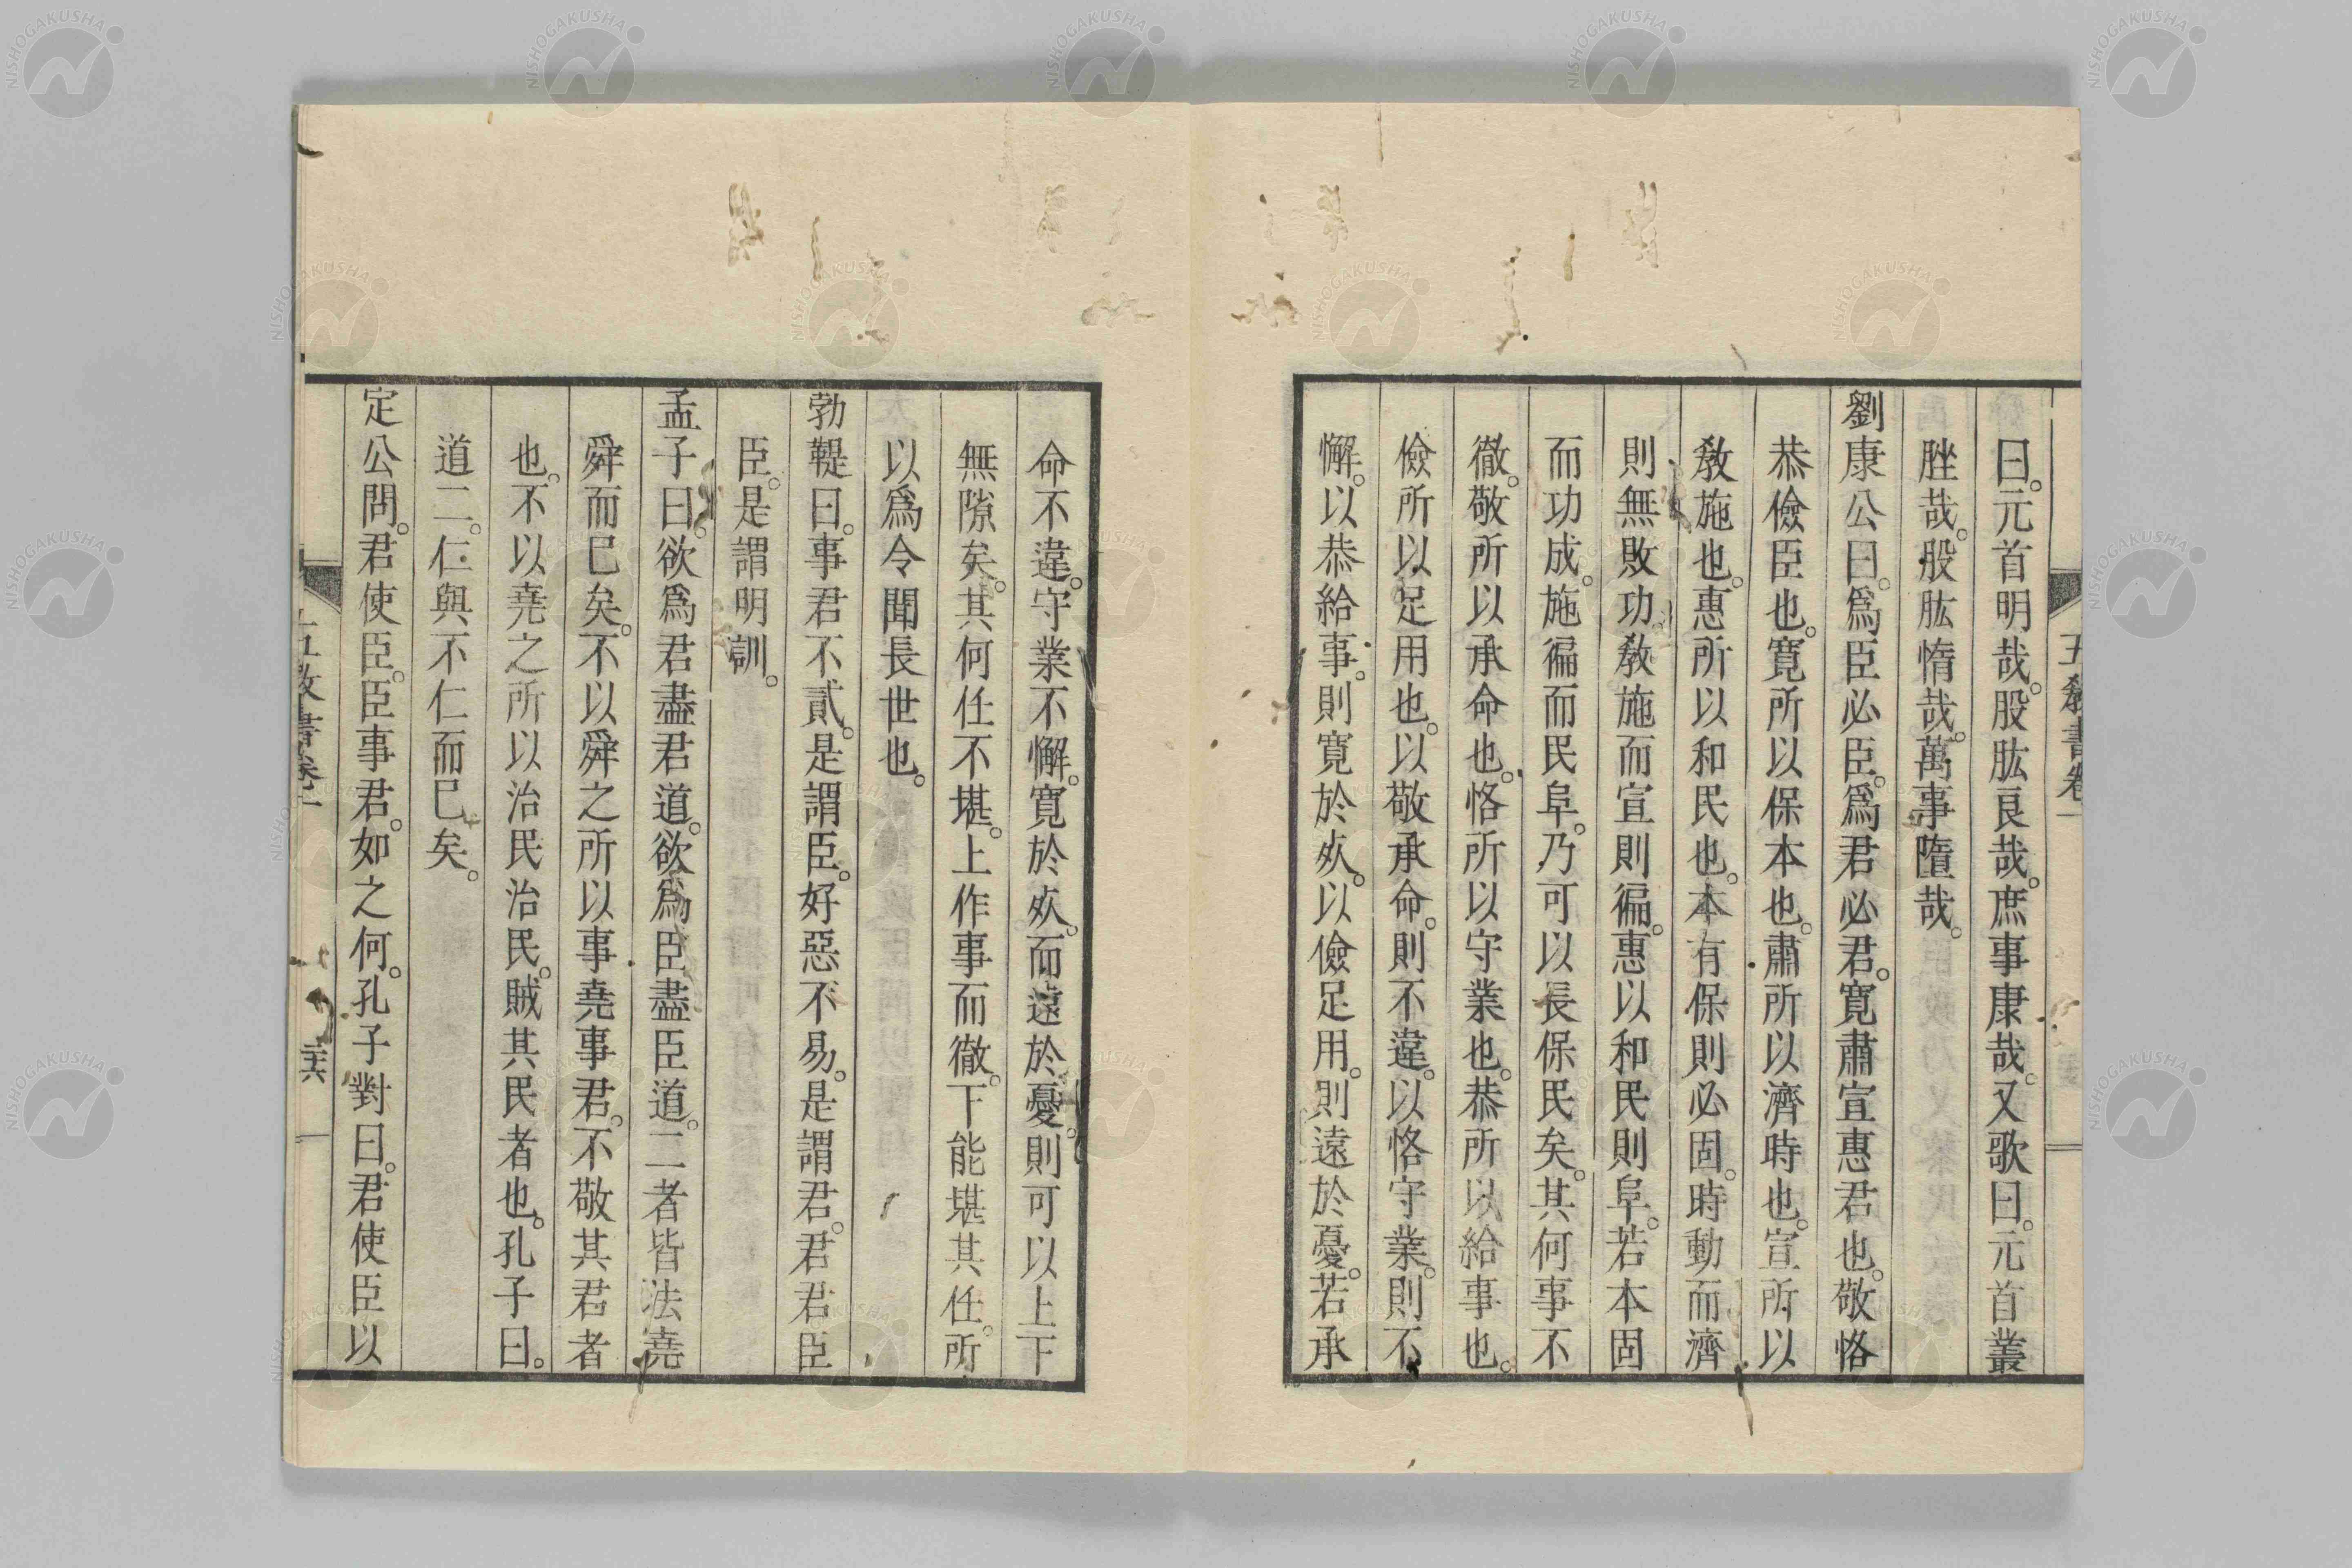 五教書卷一
曰。元首明哉。股肱良哉。庶事康哉。又歌曰。元首叢
脞哉。股肱惰哉。萬事墮哉。
劉康公曰。爲臣必臣。爲君必君。寬肅宣惠君也。敬恪
恭儉臣也。寬所以保本也。肅所以濟時也。宣所以
敎施也。惠所以和民也。本有保則必固。時動而濟
則無敗功。敎施而宣則徧。惠以和民則阜。若本固
而功成。施徧而民阜。乃可以長保民矣。其何事不
徹。敬所以承命也。恪所以守業也。恭所以給事也。
儉所以足用也。以敬承命。則不違。以恪守業。則不
懈。以恭給事。則寬於死。以儉足用。則遠於憂。若承
命不違。守業不懈。寬於死。而遠於憂。則可以上下
無隙矣。其何任不堪。上作事而徹。下能堪其任。所
以爲令聞長世也。
勃鞮曰。事君不貳。是謂臣。好惡不易。是謂君。君君臣
臣。是謂明訓。
孟子曰。欲爲君盡君道。欲爲臣盡臣道。二者皆法堯
舜而已矣。不以舜之所以事堯事君。不敬其君者
也。不以堯之所以治民治民。賊其民者也。孔子曰。
道二。仁與不仁而已矣。
定公問。君使臣。臣事君。如之何。孔子對曰。君使臣以
五敎書卷一
二十六
NISHOGAKUSHA